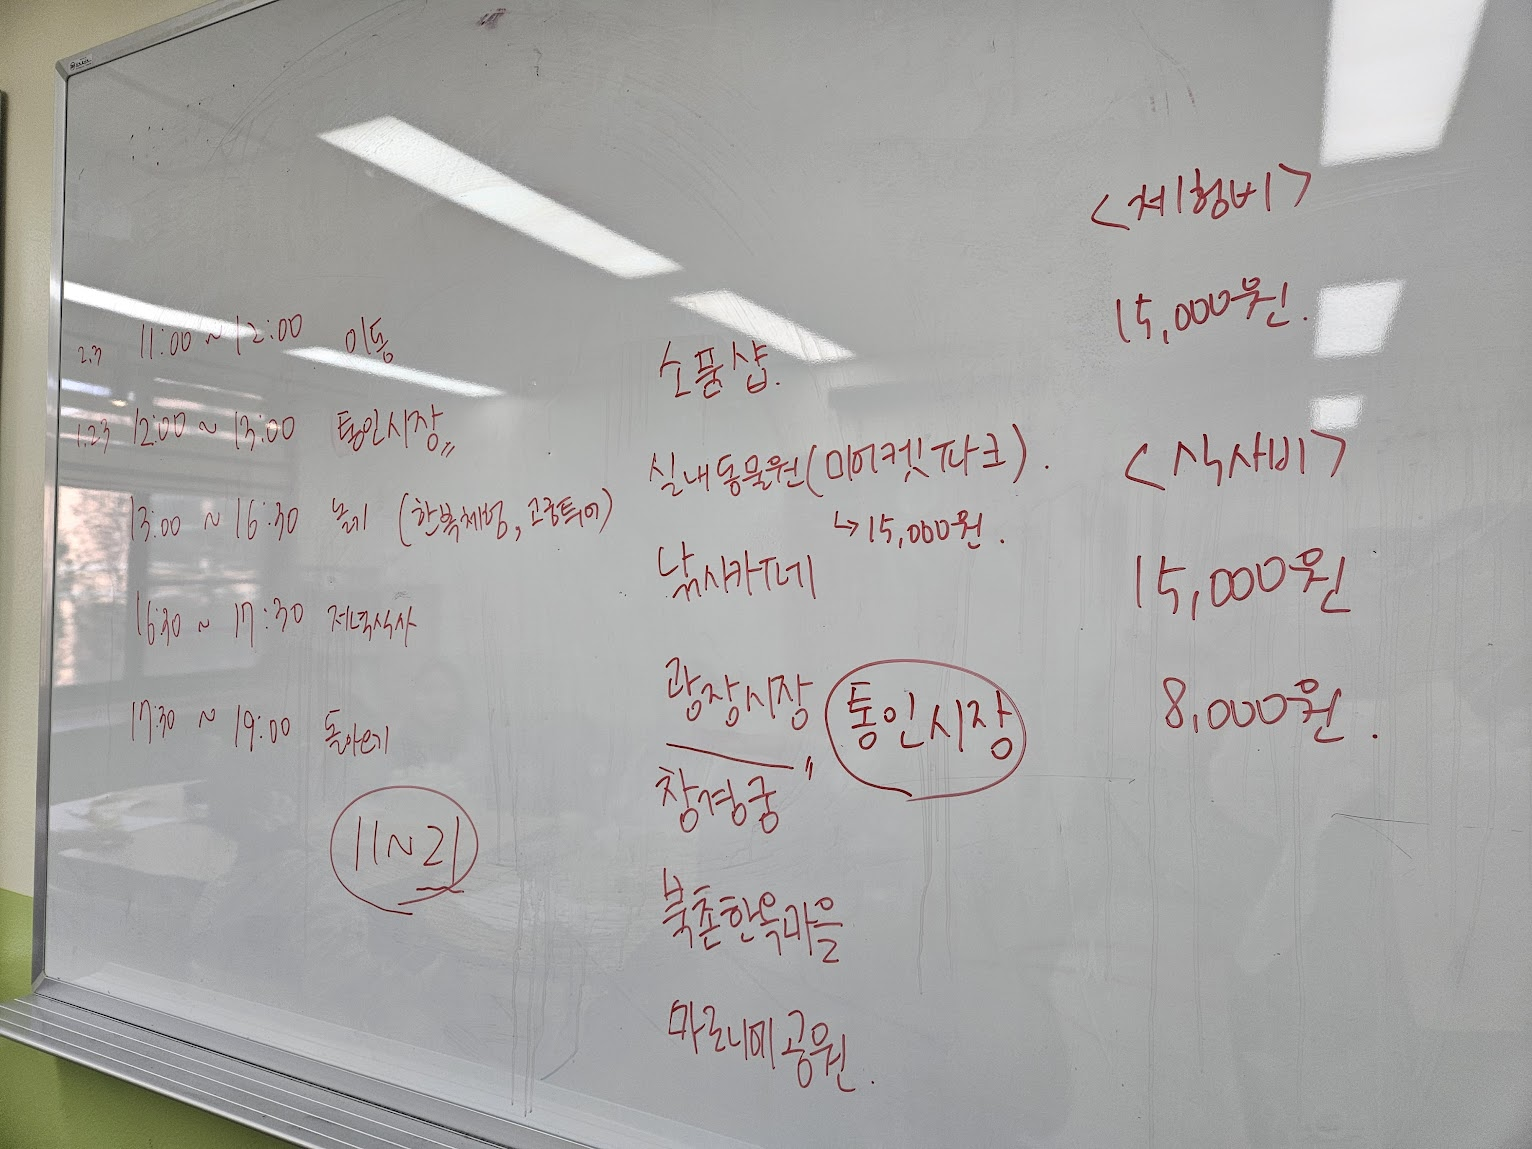 2.3 11:00 ~ 12:00 이동
1.23 12:00 ~ 13:00 통인시장〃
13:00 ~ 16:30 놀기 (한복체험, 고궁투어)
16:30 ~ 17:30 저녁식사
17:30 ~ 19:00 돌아오기
11~21
소품샵.
실내동물원(미어켓파크).
↳15,000원.
낚시카페
광장시장 〃
통인시장
창경궁
북촌한옥마을
마로니에공원.
<체험비>
15,000원.
<식사비>
15,000원
8,000원.